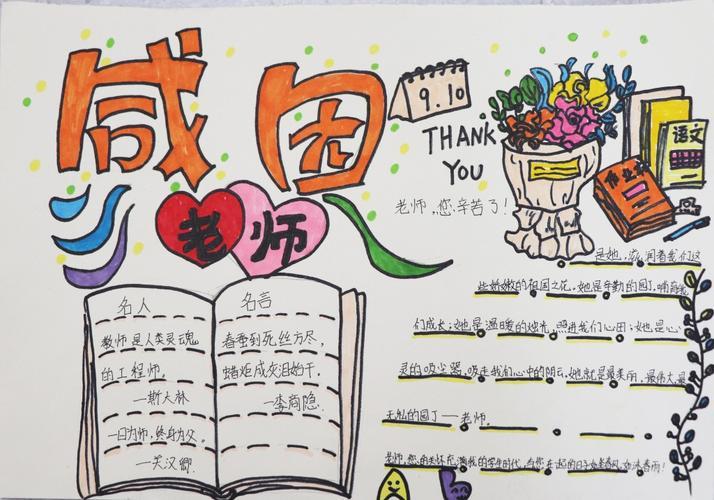 感恩
9.10
THANK
YOU
老师,您辛苦了!
语文
作业本
老师
名人 名言
教师是人类灵魂
的工程师。
—斯大林
一日为师,终身为父。
—关汉卿
春蚕到死丝方尽,
蜡炬成灰泪始干。
—李商隐
是她,滋润着我们这
些娇嫩的祖国之花,她是辛勤的园丁,哺育我
们成长;她是温暖的烛光,照进我们心田;她是心
灵的吸尘器,吸走我们心中的阴云,她就是最美丽、最伟大、最
无私的园丁——老师。
老师,您的关怀充满我的学生时代,与您在起的日子如春风,如沐春雨!